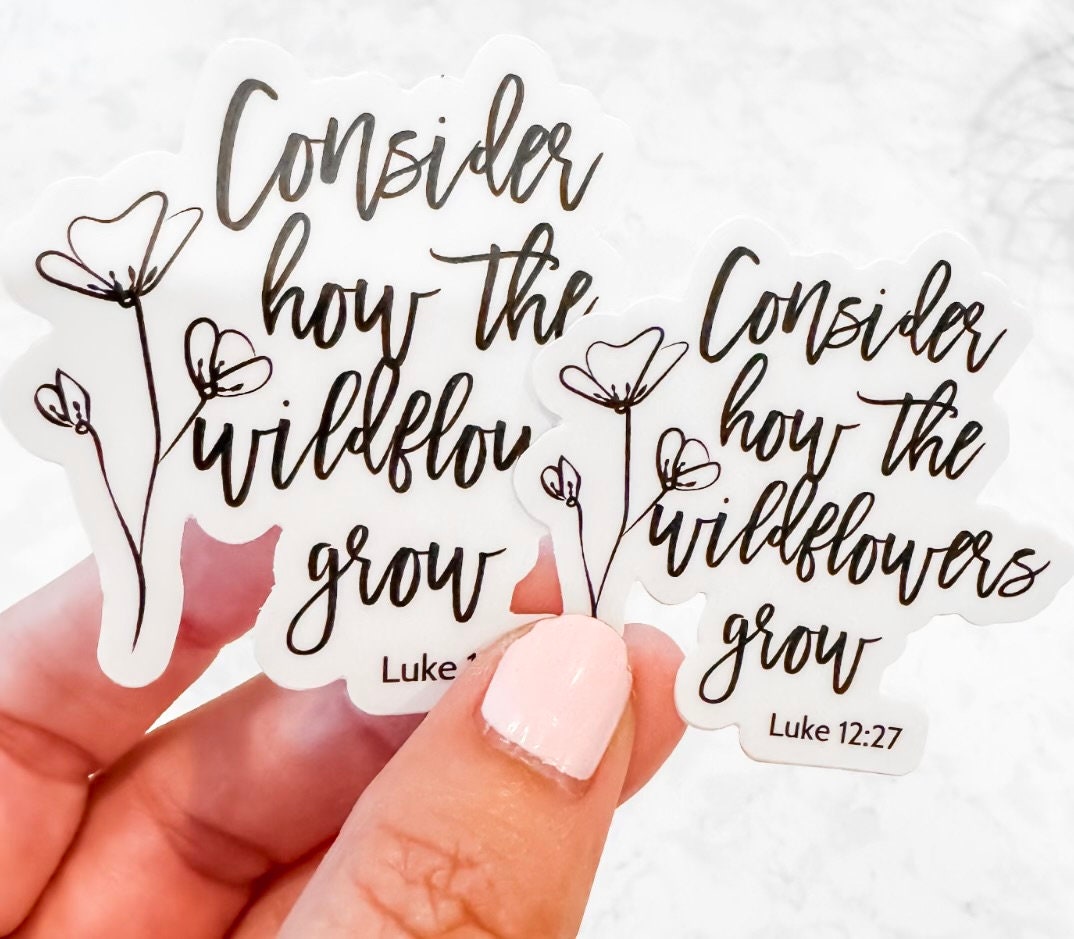 Consider
how the
wildflow
grow
Luke 1
Consider
how the
wildflowers
grow
Luke 12:27